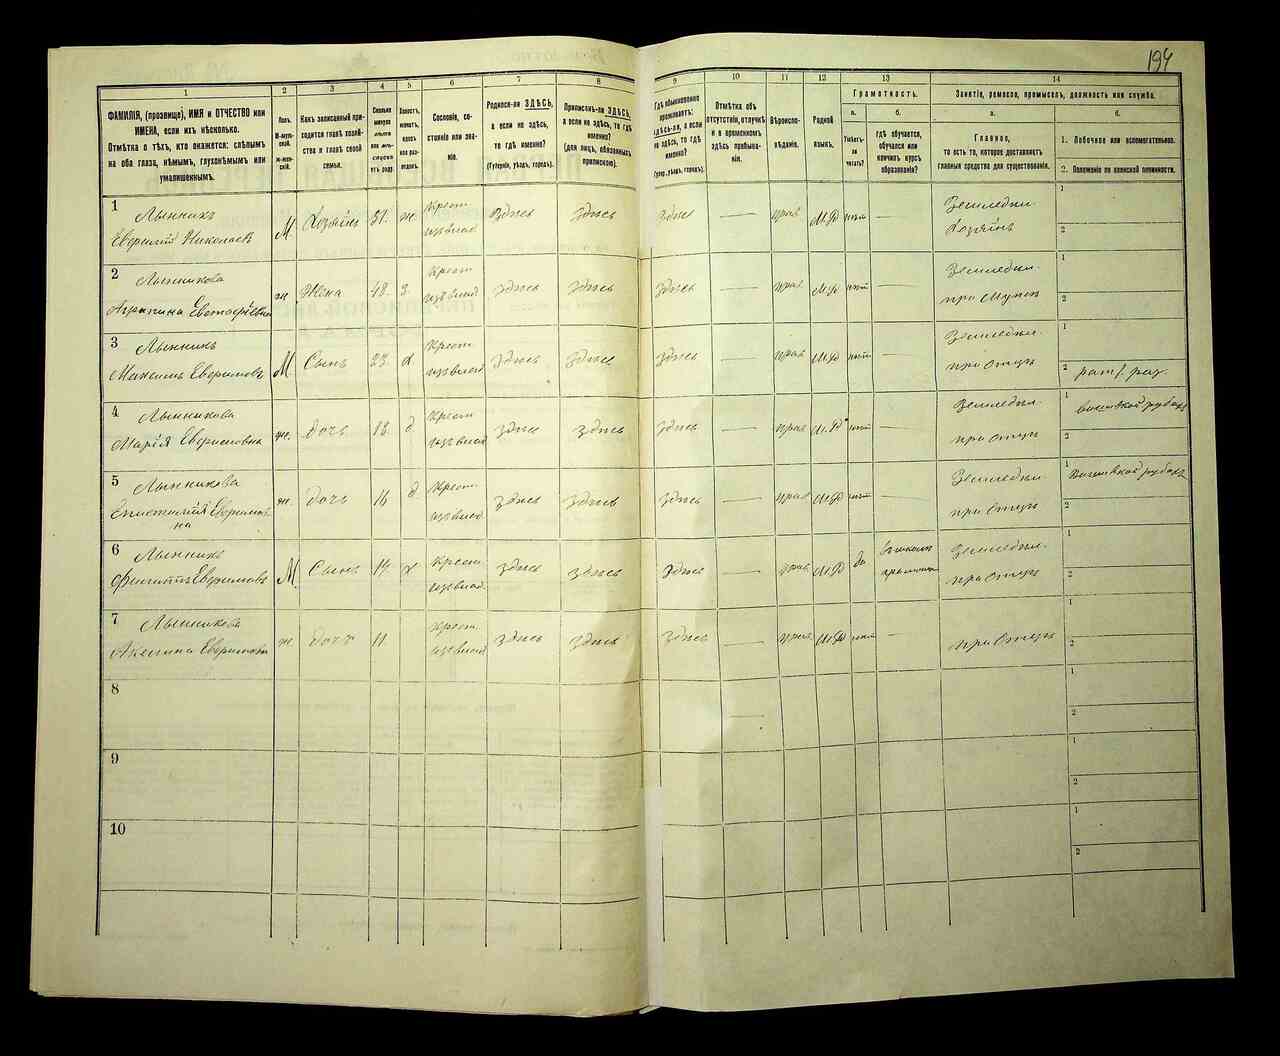 194
1 2 3 4 5 6 7 8 9 10 11 12 13 14
ФАМИЛІЯ, (прозвище), ИМЯ и ОТЧЕСТВО или
ИМЕНА, если ихъ нѣсколько.
Отмѣтка о тѣхъ, кто окажется: слѣпымъ
на оба глаза, нѣмымъ, глухонѣмымъ или
умалишеннымъ.
Полъ.
М-мужской.
ж-женскій.
Какъ записанный приходится главѣ хозяйства и главѣ своей семьи.
Сколько минуло лѣтъ или мѣсяцевъ отъ роду?
Холостъ, женатъ, вдовъ или разведенъ.
Сословіе, состояніе или званіе.
Родился-ли ЗДѢСЬ,
а если не здѣсь,
то гдѣ именно?
(Губернія, уѣздъ, городъ).
Приписанъ-ли ЗДѢСЬ,
а если не здѣсь, то гдѣ
именно?
(для лицъ, обязанныхъ
припискою).
Гдѣ обыкновенно
проживаетъ:
здѣсь-ли, а если
не здѣсь, то гдѣ
именно?
(Губер., уѣздъ, городъ).
Отмѣтка объ
отсутствіи, отлучкѣ
и о временномъ
здѣсь пребываніи.
Вѣроисповѣданіе.
Родной
языкъ.
Грамотность.
а.
Умѣетъ-ли
читать?
б.
гдѣ обучается,
обучался или
кончилъ курсъ
образованія?
Занятіе, ремесло, промыселъ, должность или служба.
а.
Главное,
то есть то, которое доставляетъ
главныя средства для существованія.
б.
1. Побочное или вспомогательное.
2. Положеніе по воинской повинности.
1 Лынникъ
Евфимій Николаевъ М Хозяинъ 51. ж. Крест. изъ влад. здѣсь здѣсь здѣсь — прав М.Р нѣт — Земледѣл. Хозяинъ
2 Лынникова
ж Жена 48. З. Крест. изъ влад. здѣсь здѣсь здѣсь — прав М.Р нѣт — Земледѣл. при мужѣ
3 Лынникъ
Максимъ Евфимовъ М Сынъ 23. х Крест. изъ влад здѣсь здѣсь здѣсь — прав М.Р нѣт — Земледѣл. при Отцѣ
4 Лынникова
Марія Евфимовна ж. дочь 18. д Крест. изъ влад здѣсь здѣсь здѣсь — прав М.Р нѣт — Земледѣл. при Отцѣ
5 Лынникова
ж. дочь 16 д Крест. изъ влад. здѣсь здѣсь здѣсь — прав М.Р нѣт — Земледѣл. при Отцѣ
6 Лынникъ
Филиппъ Евфимовъ М Сынъ 14. х Крест. изъ влад. здѣсь здѣсь здѣсь — прав М.Р да Земледѣл. при Отцѣ
7 Лынникова
Акелина Евфимовна ж. дочь 11. Крест. изъ влад здѣсь здѣсь здѣсь — прав М.Р нѣт — при Отцѣ
8
9
10